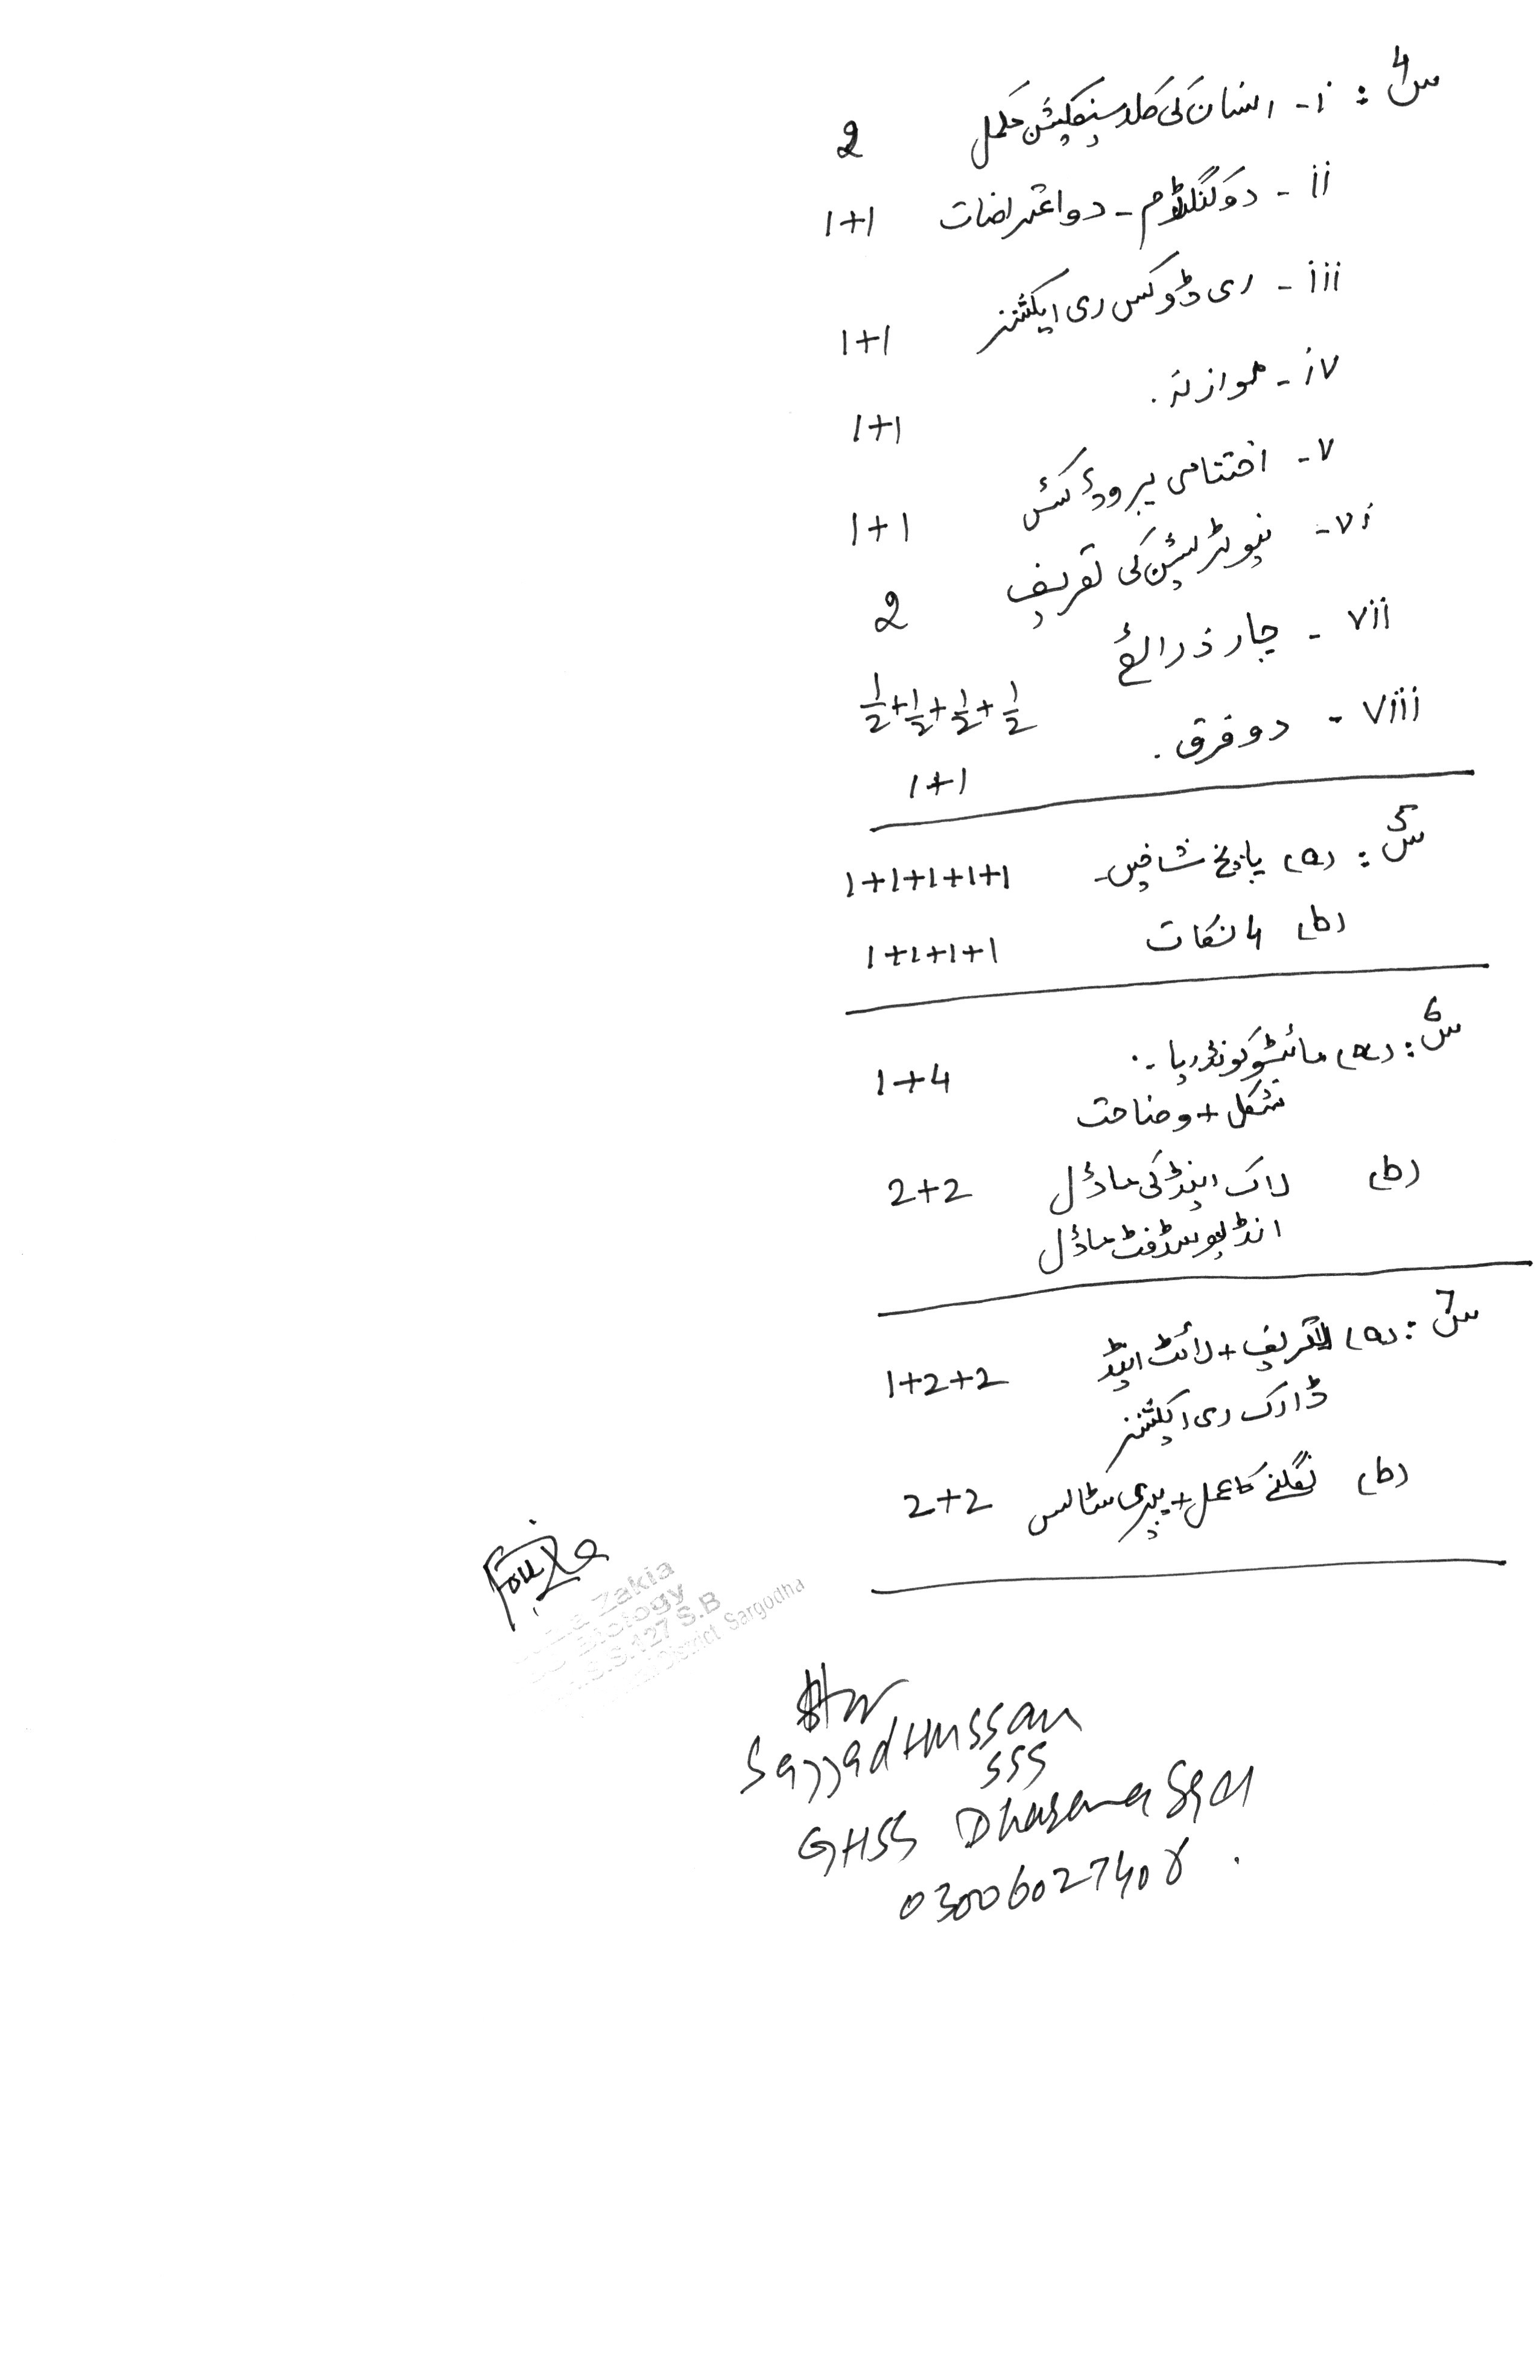 س4: i- انسان کی کلاسیفیکیشن مکمل 2
ii- دو کنگڈم - دو اعتراضات 1+1
iii- ری ڈوکس ری ایکشنز 1+1
iv- موازنہ. 1+1
v- اختتامی پروڈکٹس 1+1
vi- نیوٹریشن کی تعریف 2
vii- چار ذرائع 1/2+1/2+1/2+1/2
viii- دو فرق. 1+1
س5: (a) پانچ شاخیں- 1+1+1+1+1
(b) 4 نکات 1+1+1+1
س6: (a) مائٹوکونڈریا -: 1+4
شکل + وضاحت
(b) لاک اینڈ کی ماڈل 2+2
انڈیوسڈ فٹ ماڈل
س7: (a) تعریف + لائٹ اینڈ 1+2+2
ڈارک ری ایکشنز
(b) نگلنے کا عمل + پیری سٹالسس 2+2
Zakia
Biology
127 S.B
District Sargodha
Sajjad Hussain
SSS
GHSS
03006027408